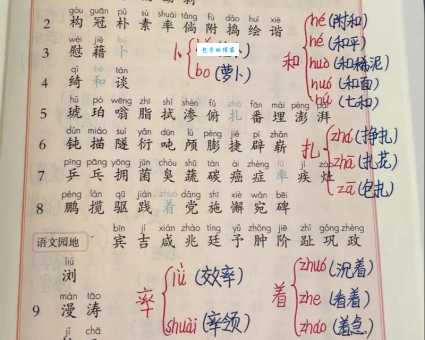 gòu guān pǔ sù shuài tǎng fù dǎo huì xié
2 构 冠 朴 素 率 倘 附 捣 绘 谐
wèi jiè
3 慰 藉 卜
卜
bo (萝卜)
和
hé (附和)
hé (和平)
huò (和稀泥)
huó (和面)
hú (七和)
qǐ tán
4 绮 和 谈
hǔ pò wēng zhī shì shèn fǔ fān mái péng pài
5 琥 珀 嗡 脂 拭 渗 俯 扎 番 埋 澎 湃
扎
zhá (挣扎)
zhā (扎花)
zā (包扎)
dùn miáo suì yǎn dūn lú péng jié pì zhǎn
6 钝 描 隧 衍 吨 颅 膨 捷 辟 崭
pīng pāng yōng jūn chòu shū tàn ái zhèng jí zāo
7 乒 乓 拥 菌 臭 蔬 碳 癌 症 率 疾 灶
péng lǎn qū jiàn dǎng shī xiè wǎn bēi
8 鹏 揽 驱 践 着 党 施 懈 宛 碑
bīn jí xián zhào tíng yǔ zhǒng jiē zhǐ gǒng zhèng
语文园地 宾 吉 咸 兆 廷 予 肿 阶 趾 巩 政
liú
浏
màn tāo
9 漫 涛
jī chā
率
lǜ (效率)
shuài (率领)
着
zhuó (沉着)
zhe (看着)
zháo (着急)